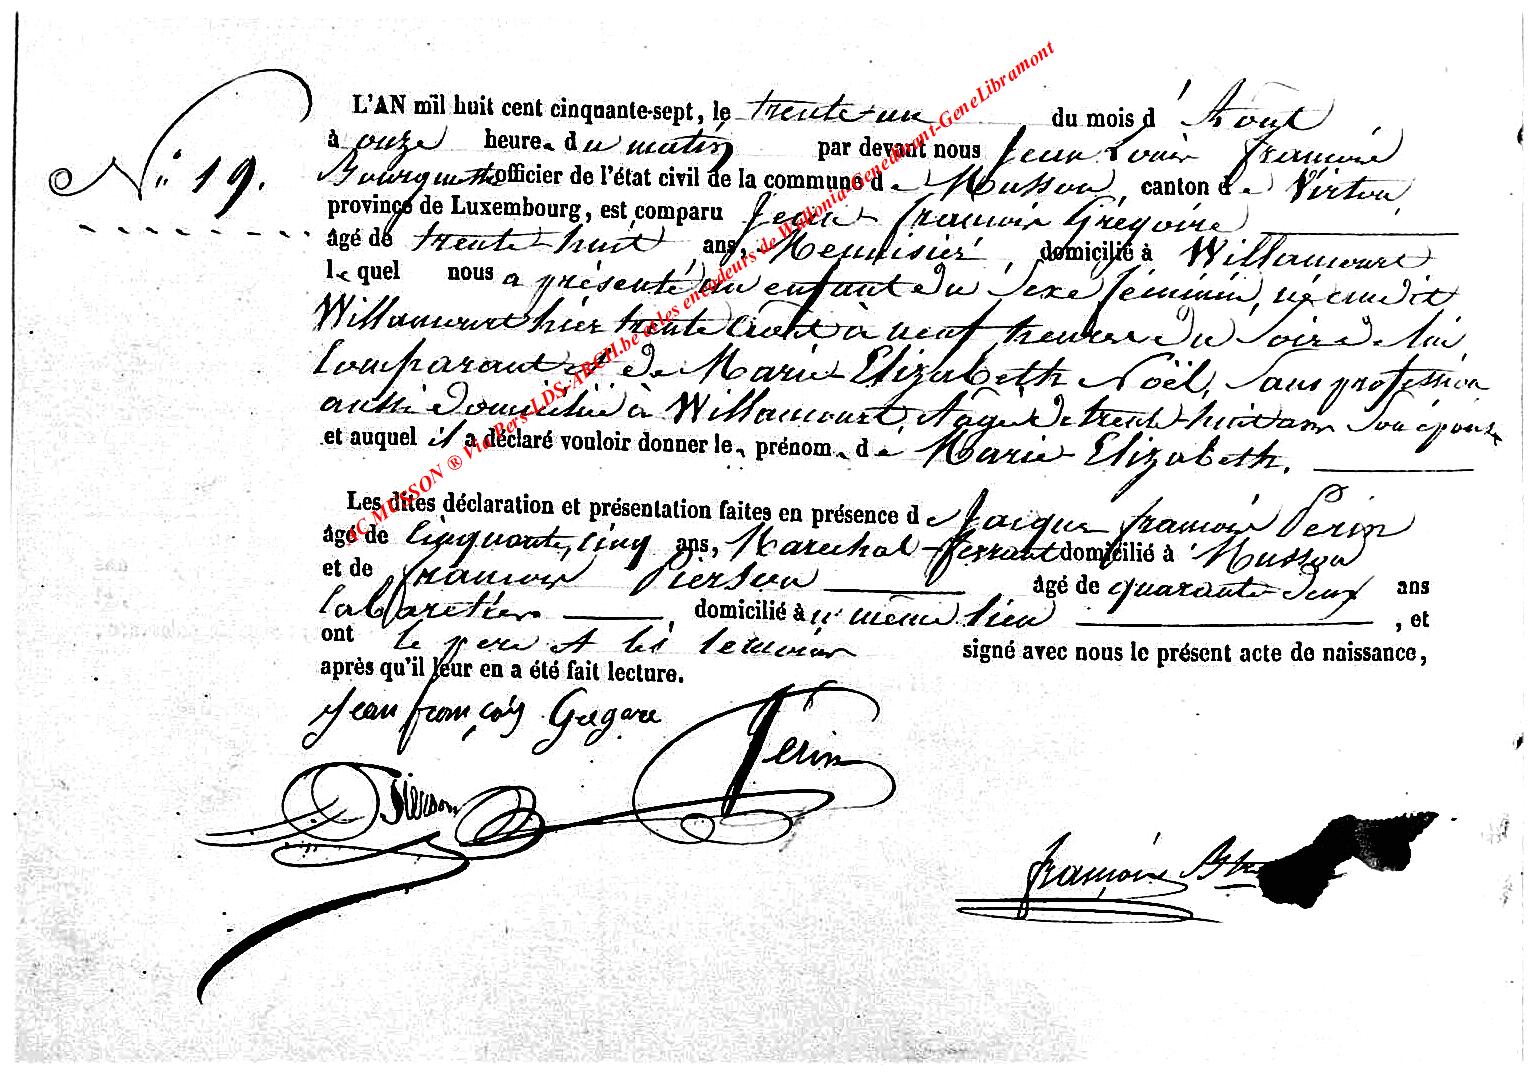 L'AN mil huit cent cinquante-sept, le trente-un du mois d' Août
N° 19. à onze heure. du matin par devant nous Jean Louis François
Bourguet officier de l'état civil de la commune de Musson, canton de Virton,
province de Luxembourg, est comparu Jean François Grégoire
âgé de trente-huit ans, Menuisier, domicilié à Willancourt
lequel nous a présenté un enfant du sexe féminin, né audit
Willancourt hier trente août à neuf heures du soir de lui
Comparant et de Marie Elizabeth Noël, sans profession
aussi domicilié à Willancourt, âgée de trente-huit ans son épouse
et auquel il a déclaré vouloir donner le prénom de Marie Elizabeth.
Les dites déclaration et présentation faites en présence de Jacques françois Perin
âgé de Cinquante, cinq ans, Marechal-ferrant domicilié à Musson
et de françois Pierson âgé de quarante deux ans
Cabaretier, domicilié à même lieu, et
ont le pere et les temoins signé avec nous le présent acte de naissance,
après qu'il leur en a été fait lecture.
Jean françois Gregoire
Perin
Pierson
françois
AC MUSSON ® Via Pers-LDS-ARCH.be et les encodeurs de Wallonia-Genedinant-GeneLibramont